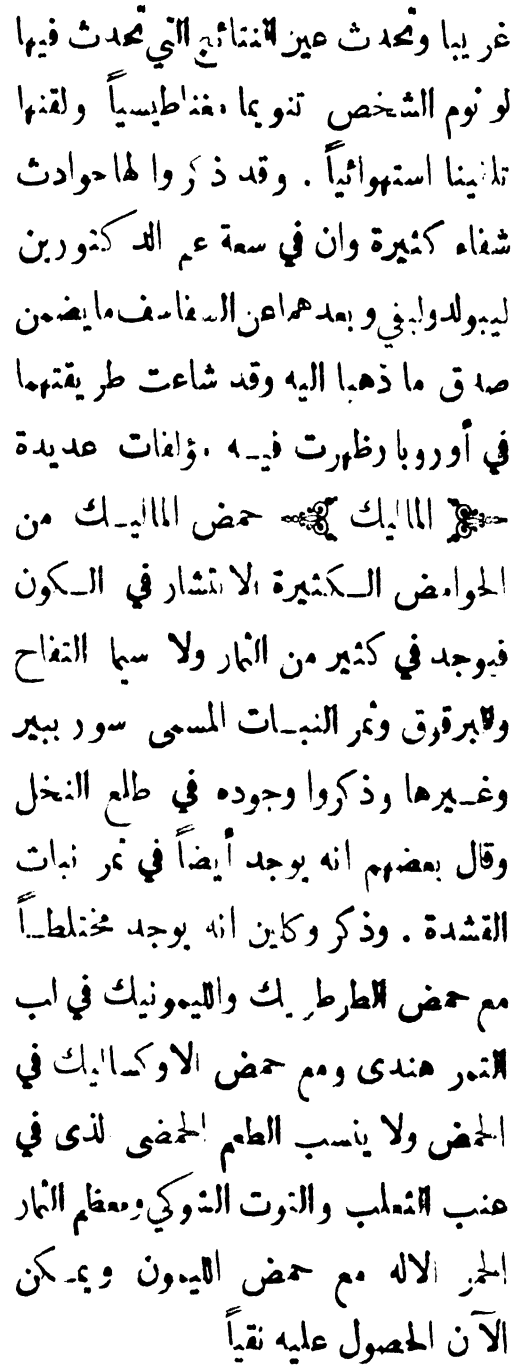 غريبا وتحدث عين النتائج التي تحدث فيها
لو نوم الشخص تنويما مغناطيسياً ولقنها
تلقينا استهوائياً . وقد ذكروا لها حوادث
شفاء كثيرة وان في سعة علم الدكتورين
ليبولد وليفي وبعدهما عن السفاسف ما يضمن
صدق ما ذهبا اليه وقد شاعت طريقتهما
في أوروبا وظهرت فيه مؤلفات عديدة
الماليك حمض الماليك من
الحوامض الكثيرة الانتشار في الكون
فيوجد في كثير من الثمار ولا سيما التفاح
والبرقوق وثمر النبات المسمى سور بيير
وغيرها وذكروا وجوده في طلع النخل
وقال بعضهم انه يوجد أيضاً في ثمر نبات
القشدة . وذكر وكاين انه يوجد مختلطاً
مع حمض الطرطريك والليمونيك في لب
التمر هندى ومع حمض الاوكساليك في
الحمض ولا ينسب الطعم الحمضى لذى في
عنب الثعلب والتوت الشوكي ومعظم الثمار
الحمر الا له مع حمض الليمون ويمكن
الآن الحصول عليه نقياً